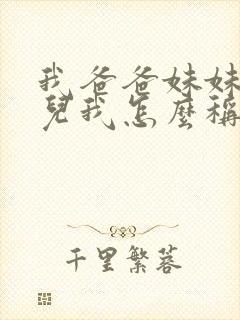 我爸爸妹妹
兒我怎麼稱
千里繁蓉